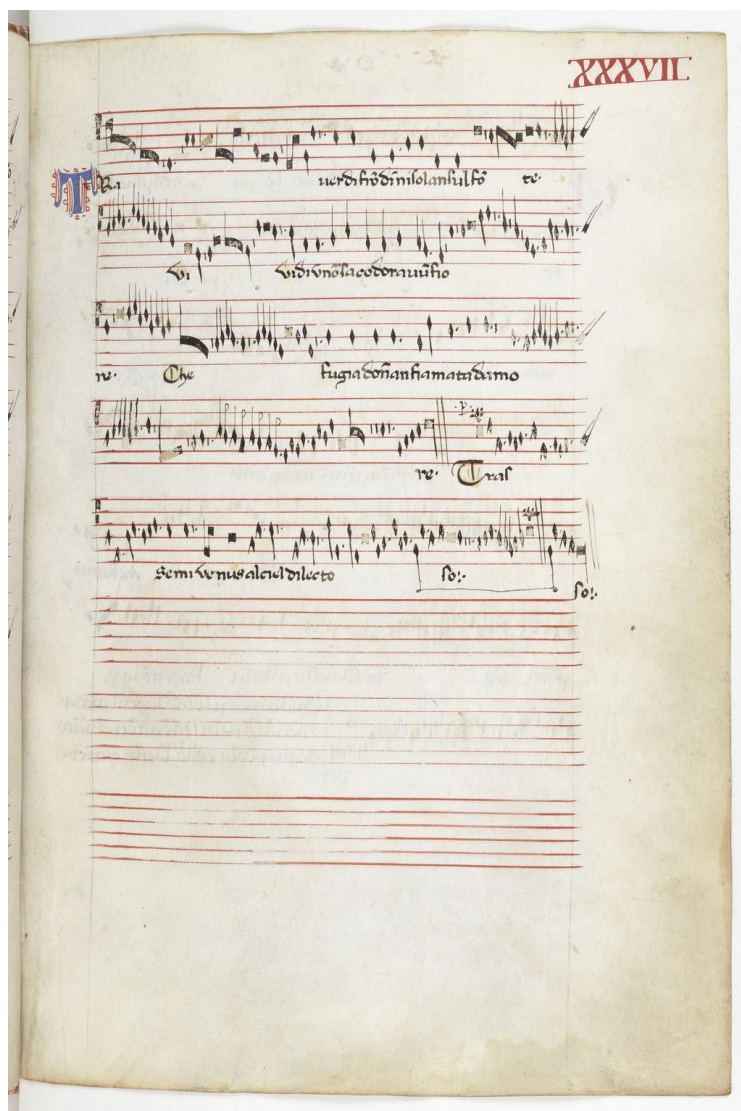 XXXVII
Tra verdi frõdi nisolansul fõ te·
Vi Vidi vnõ dorauũ fio
re· Che fugia doñanti amata damo
re· Tras
semi venus al ciel di lecto so:·
so:·